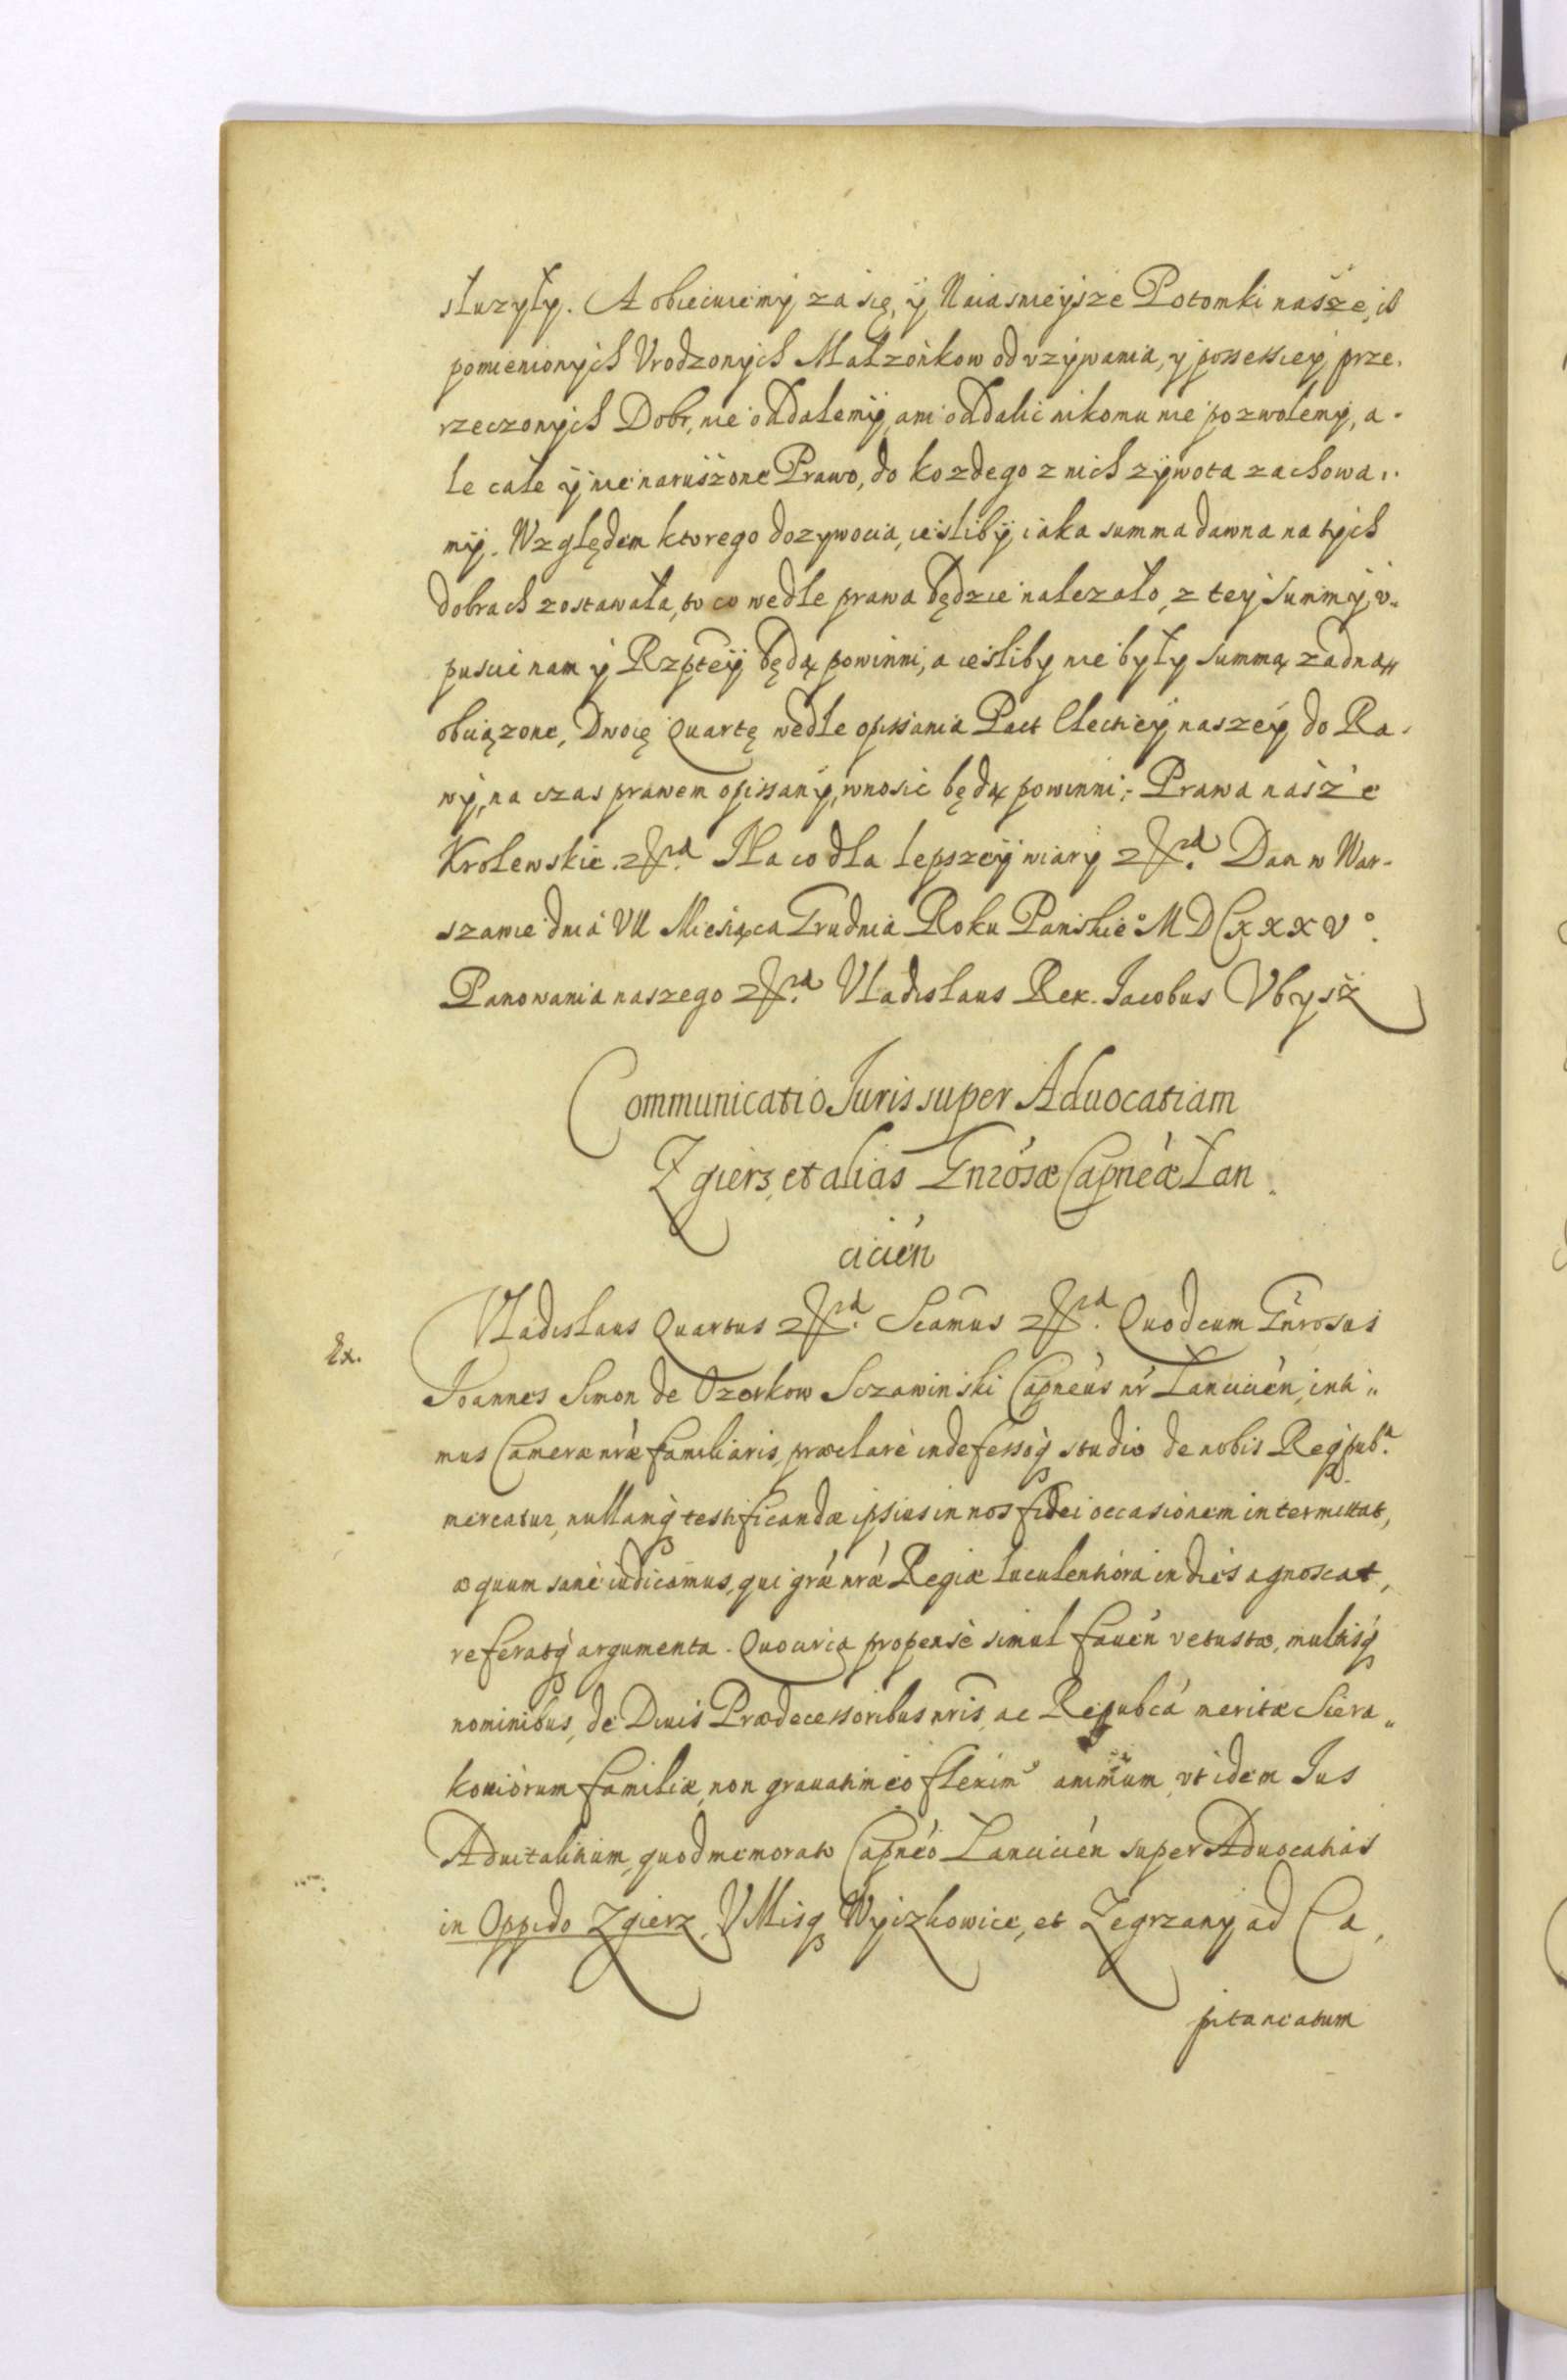 służyły. A obiecuiemy za się, y Naiasnieysze Potomki nasze, iż
pomienionych Vrodzonych Małzonkow od vzywania, y possessiey prze-
rzeczonych Dobr, nie oddalemy, ani oddalic nikomu nie pozwolemy, a-
le całe y nienaruszone Prawo, do kozdego z nich zywota zachowa-
my. Względem ktorego dozywocia, iesliby iaka summa dawna na tych
dobrach zostawała, to co wedle prawa będzie nalezało, z tey summy v-
puscic nam y Rzptey będą powinni, a iesliby nie były summą zadną
obciązone, Dwoię Quartę wedle opissania Pact Electiey naszey do Ra-
wy, na czas prawem opissany, wnosic będą powinni; Prawa nasze
Krolewskie. etc. Na co dla lepszey wiary etc. Dan w War-
szawie dnia VII Miesiąca Grudnia Roku Panskie° MDCXXXV°.
Panowania naszego etc. Vladislaus Rex. Iacobus Vbysz
Communicatio Iuris super Aduocatiam
Zgierz, et alias Gnrósæ Capneæ Lan-
cicién
Ex.
Vladislaus Quartus etc. Scamus etc. Quod cum Gnrosus
Joannes Simon de Ozorkow Sczawinski Capneus nr Lancicién, inti-
mus Cameræ nræ familiaris, præclarè indefessoq studio de nobis Reqpub.ca
mereatur, nullamq testificandæ ipsius in nos fidei occasionem intermittat,
æquum sanè iudicamus, qui gráæ nræ Regiæ luculentiora in dies agnoscat,
referatq argumenta. Quocirca propensè simul fauén vetustæ, multisq
nominibus, de Diuis Prædecessoribus nris, ac Repubcá meritæ Siera-
kouiorum familiæ, non grauatim eò flexim9 animum, vt idem Ius
Aduitalitium, quod memorato Capneo Lancicién super Aduocatias
in Oppido Zgierz, Villisq Wyizkowice, et Zegrzany ad Ca-
pitaneatum